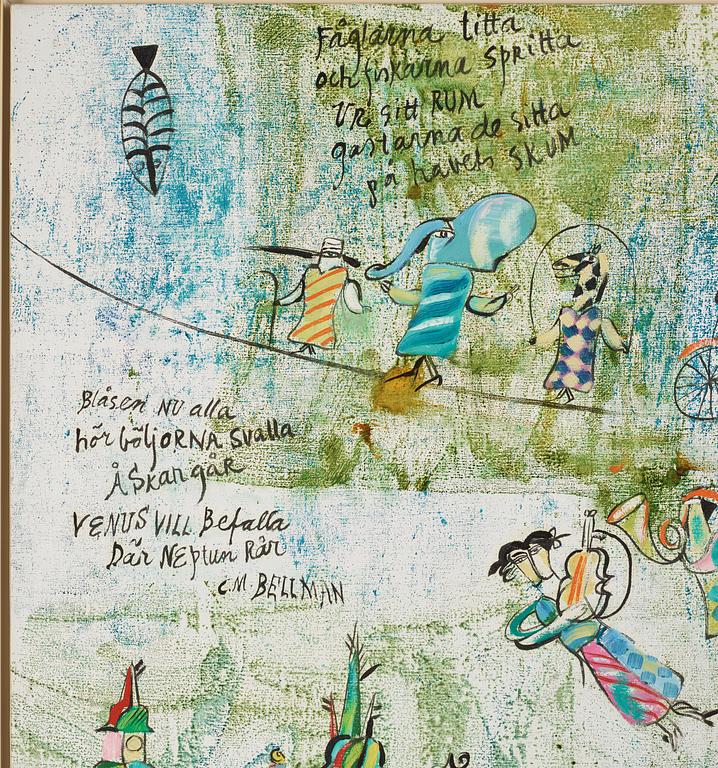 Fåglarna titta
och fiskarna spritta
UR sitt RUM
gastarna de sitta
på havets SKUM
Blåsen NU alla
hör böljORNA svalla
ÅSkan gåR
VENUS VILL Befalla
Där NEptun Rår
C.M. BELLMAN